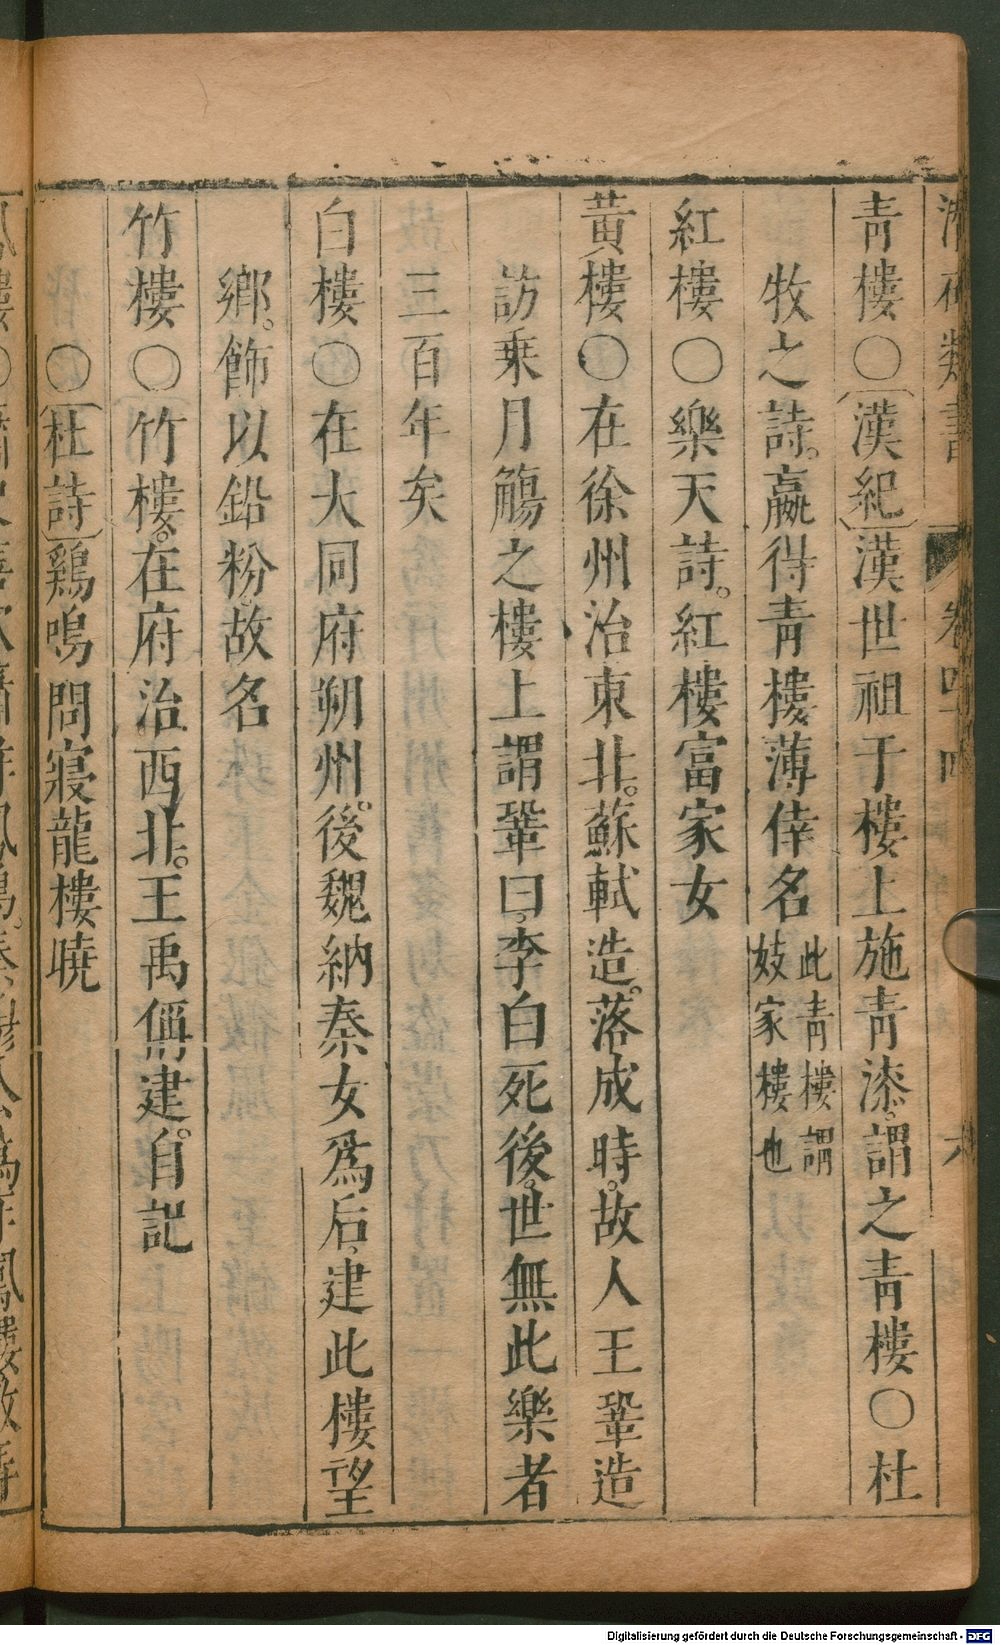 青樓○〔漢紀〕漢世祖于樓上施青漆。謂之青樓○杜
牧之詩。嬴得青樓薄倖名 此青樓謂
妓家樓也
紅樓○樂天詩。紅樓富家女
黃樓○在徐州治東北。蘇軾造。落成時。故人王鞏造
訪乗月觴之樓上謂鞏曰、李白死後。世無此樂者
三百年矣
白樓○在大同府朔州。後魏納秦女爲后、建此樓望
鄉。飾以鉛粉。故名
竹樓○竹樓。在府治西北。王禹偁建。自記
○〔杜詩〕鷄鳴問寢龍樓曉
卷四十四
六
Digitalisierung gefördert durch die Deutsche Forschungsgemeinschaft - DFG